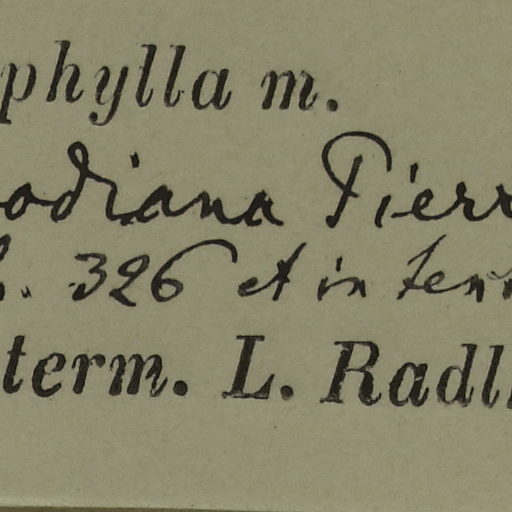 phylla m.
odiana Pierr
. 326 et in ten
term. L. Radl